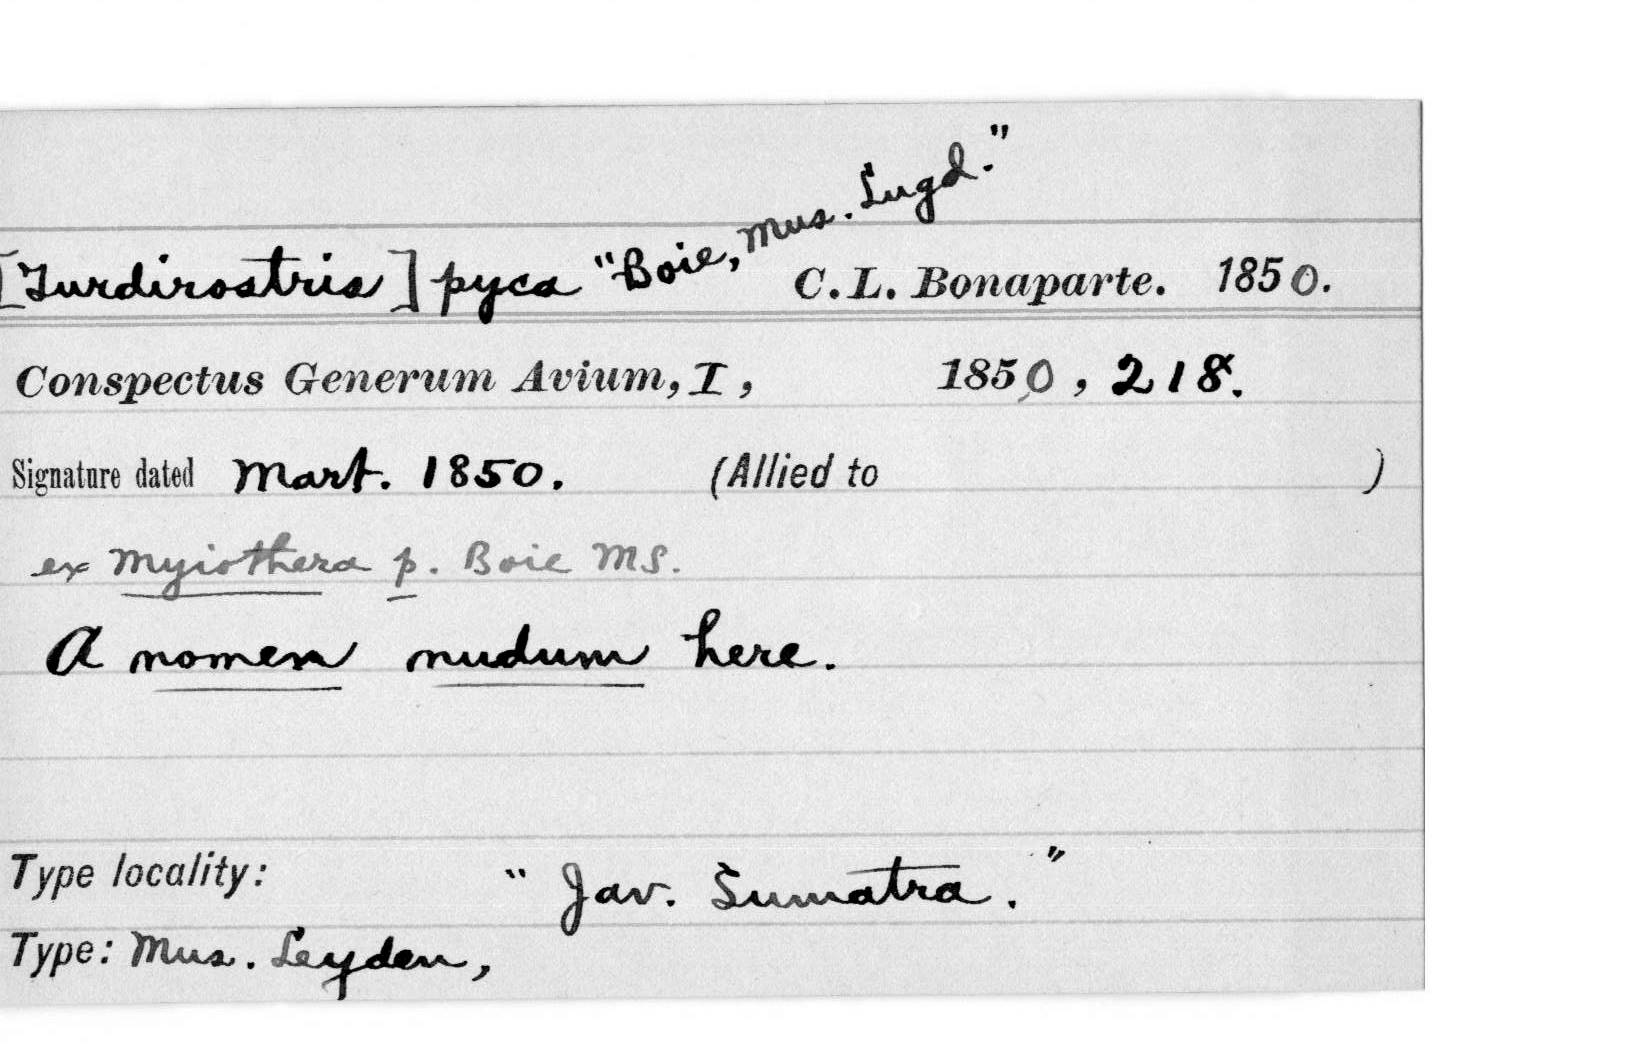 [Turdirostris] pyca "Boie, Mus. Lugd." C.L. Bonaparte. 1850.
Conspectus Generum Avium, I, 1850, 218.
Signature dated Mart. 1850. (Allied to )
ex Myiothera p. Boie MS.
A nomen nudum here.
Type locality: "Jav. Sumatra."
Type: Mus. Leyden,